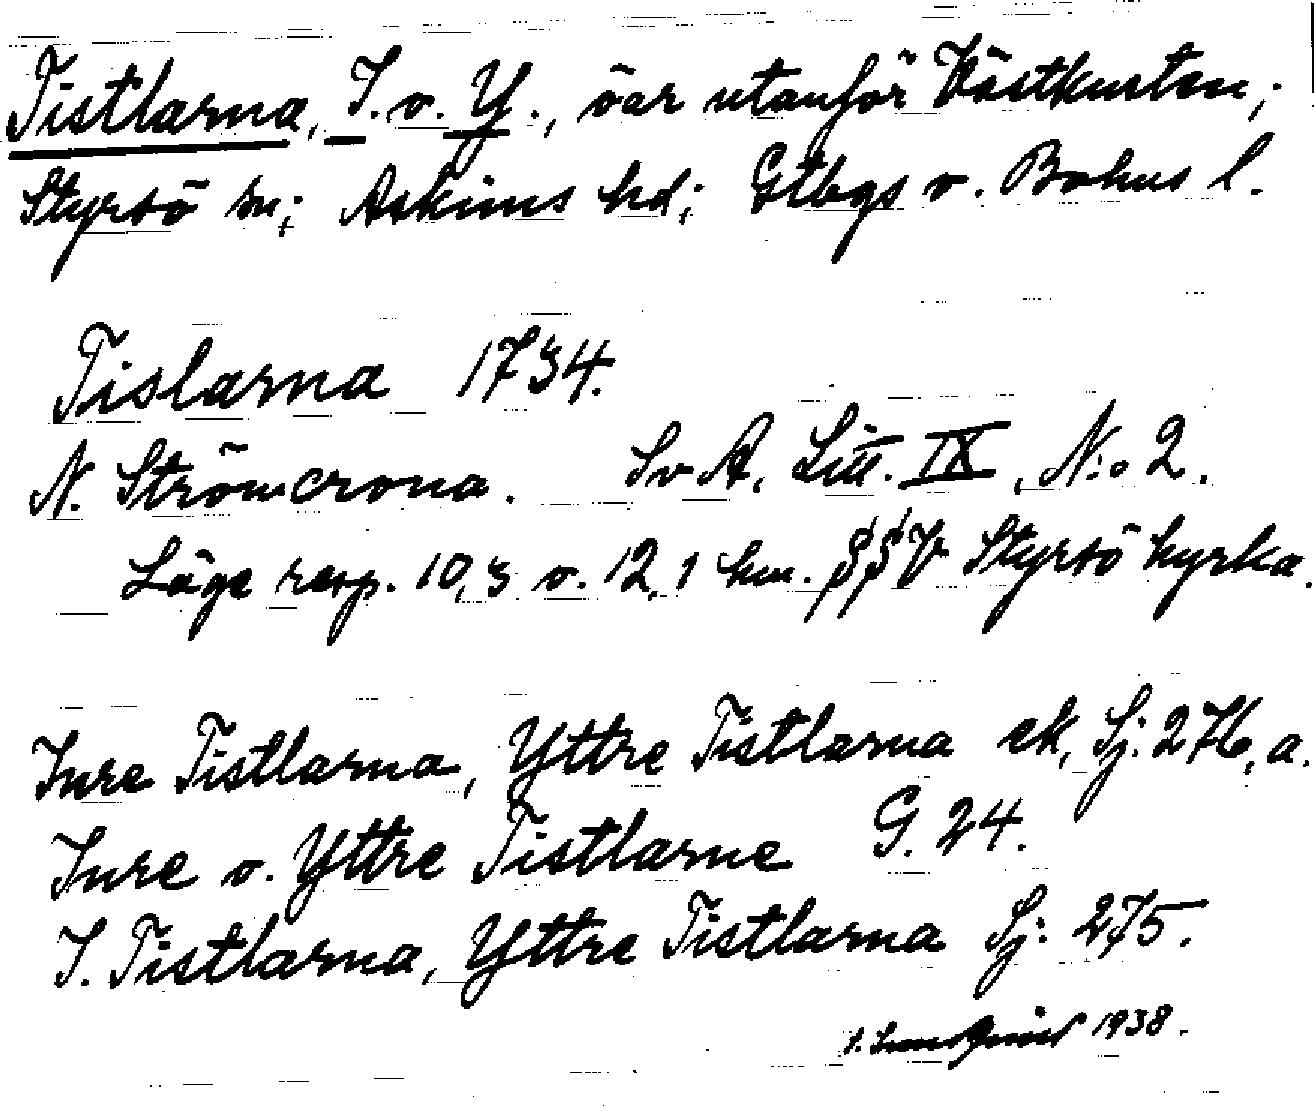 Tistlarna, I. o. Y., öar utanför Västkusten;
Styrsö sn; Askims hd; Gtbgs o. Bohus l.
Tislarna 1734.
N. Strömcrona. SvA, Litt. IX, N:o 2.
Läge resp. 10,3 o. 12,1 km. SSV Styrsö kyrka.
Inre Tistlarna, Yttre Tistlarna ek, Sj. 276, a.
Inre o. Yttre Tistlarne G. 24.
I. Tistlarna, Yttre Tistlarna Sj. 275.
1938.